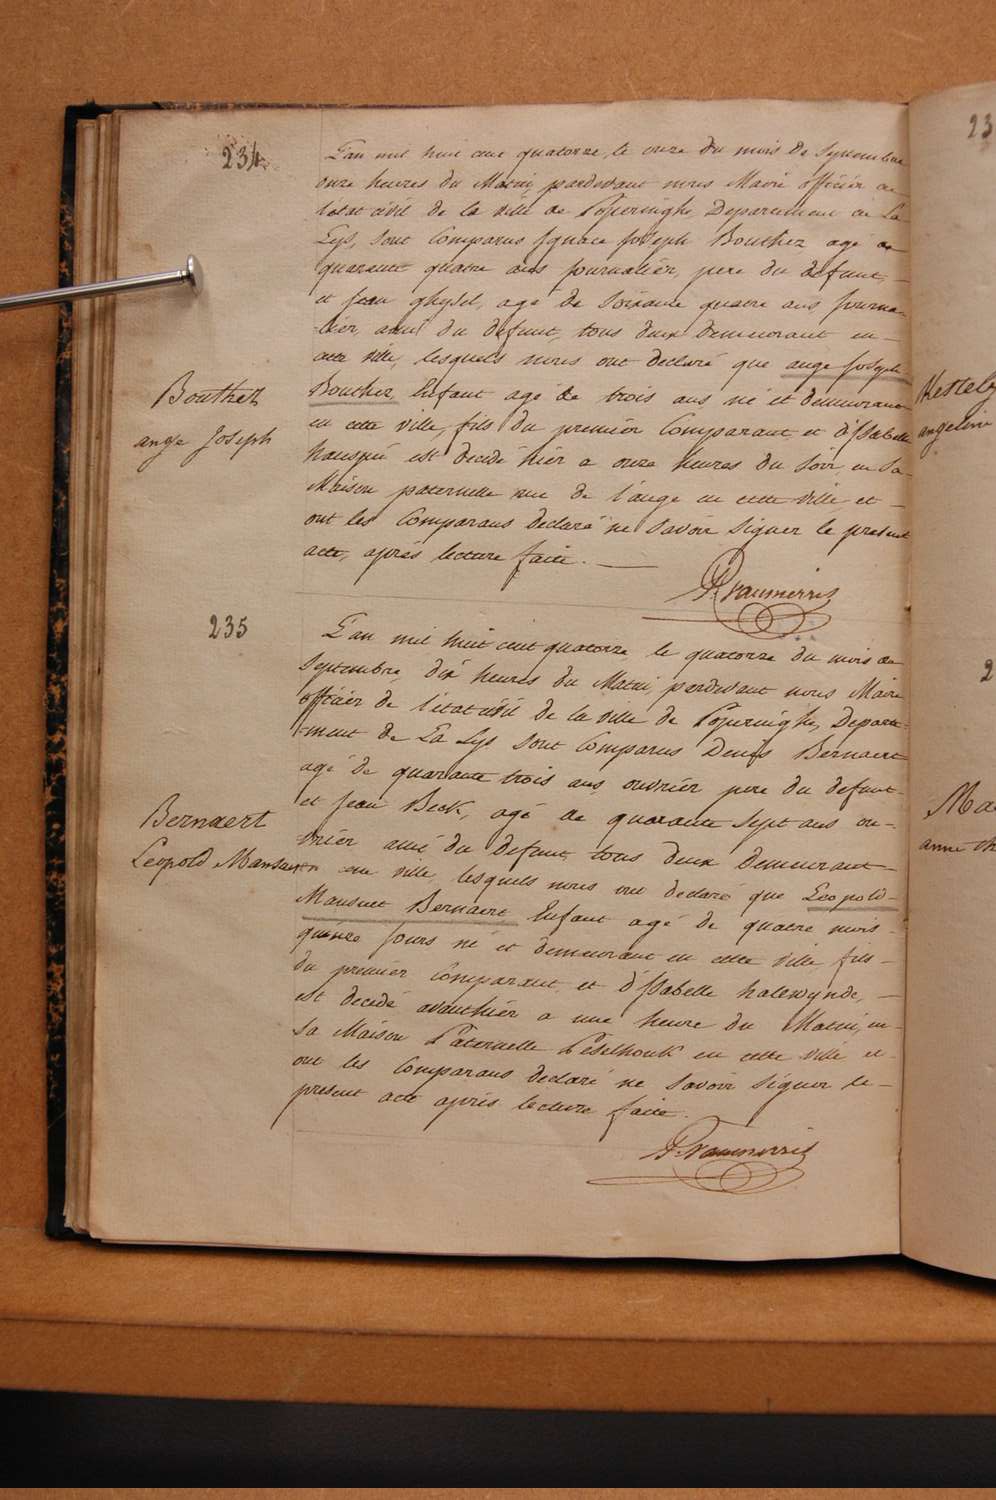 234
L'an mil huit cent quatorze, le onze du mois de Septembre
onze heures du Matin, pardevant nous Maire officier de
l'etat civil de la ville de Poperinghe, Departement de La
Lys, sont Comparus Ignace Joseph Bouthez, agé de
quarante quatre ans journalier, pere du defunt,
et Jean ghysel, agé de soixante quatre ans journa-
-lier, ami du defunt, tous deux demeurant en -
cette ville, lesquels nous ont declaré que ange Joseph
Bouthez, Enfant agé de trois ans né et demeurant
en cette ville, fils du premier Comparant et d'Isabelle
est decedé hier a onze heures du Soir, en Sa
Maison paternelle rue de l'ange en cette ville et -
ont les Comparans declaré ne Savoir Signer le present
acte, après lecture faite. —
Bouthez
ange Joseph
235
L'an mil huit cent quatorze, le quatorze du mois de
Septembre, dix heures du Matin, pardevant nous Maire
officier de l'etat civil de la ville de Poperinghe, Departe-
-ment de La Lys sont Comparus Denis Bernaert
agé de quarante trois ans, ouvrier pere du defunt -
et Jean Beck, agé de quarante Sept ans ou-
vrier ami du defunt, tous deux demeurant -
en cette ville, lesquels nous ont declaré que Leopold -
Mansuet Bernaert, Enfant agé de quatre mois -
quinze jours né et demeurant en cette ville fils -
du premier Comparant, et d'Isabelle halewynde, -
est decedé avanthier a une heure du Matin, en -
sa Maison Paternelle Peselhouk en cette ville et -
ont les Comparans declaré ne Savoir Signer le -
present acte après lecture faite.
Bernaert
Leopold Mansuet
23
Kestely
angelin
2
Ma
anne th